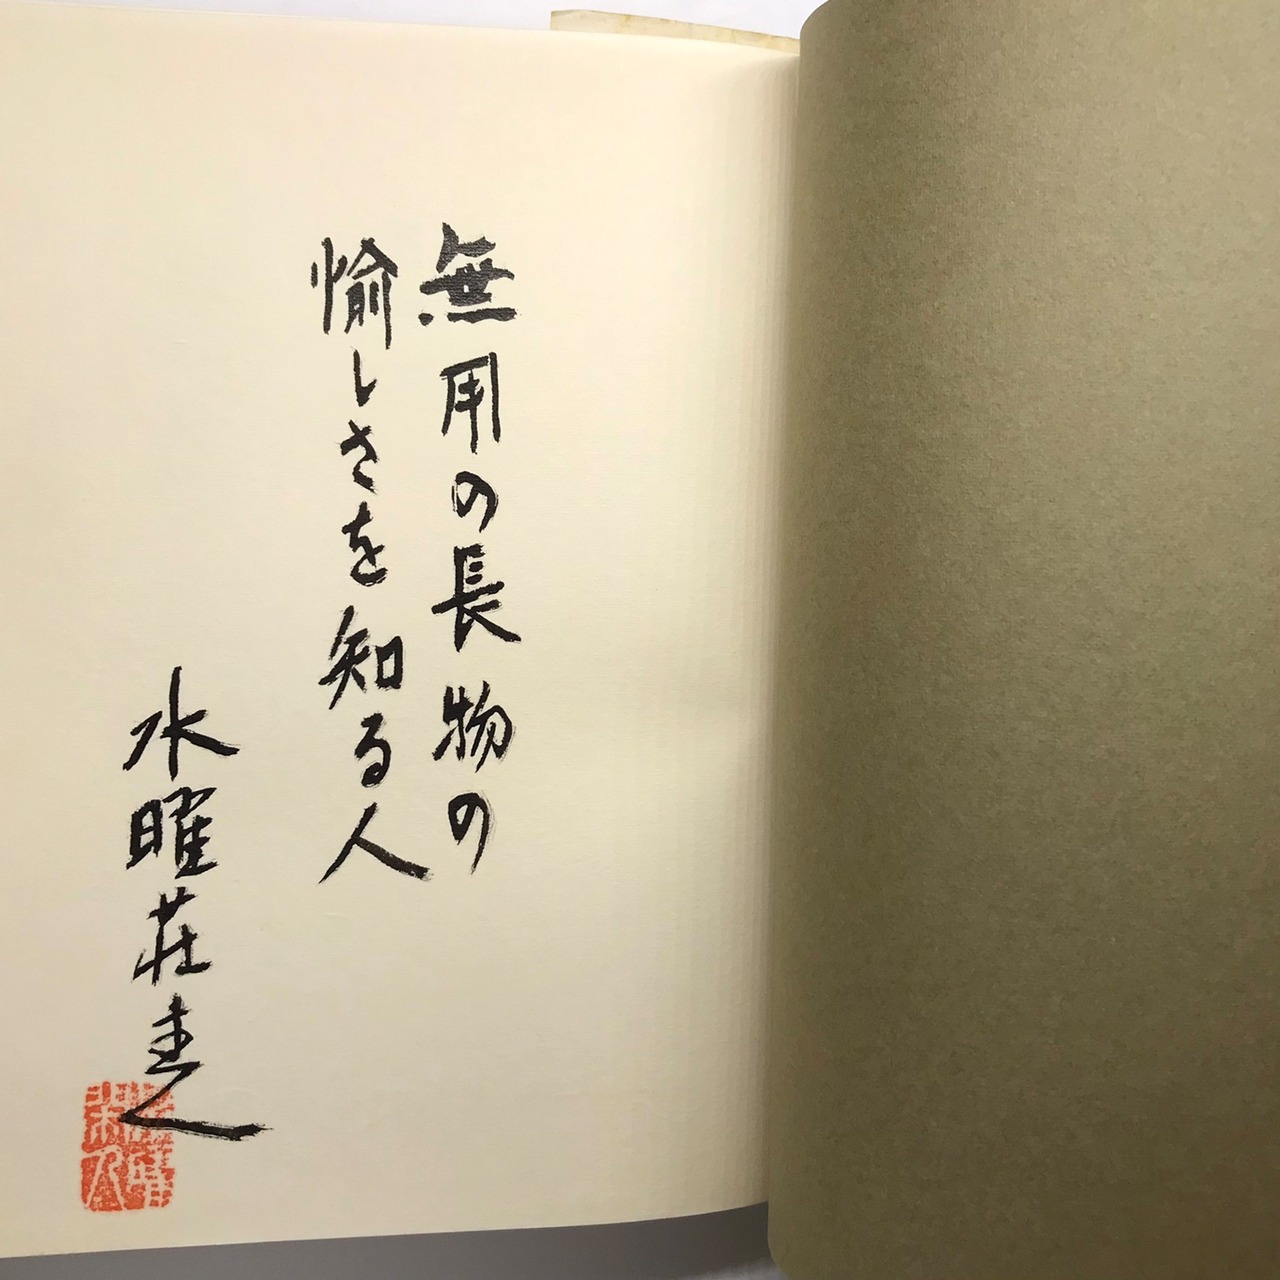 無用の長物の
愉しさを知る人
水曜荘主人